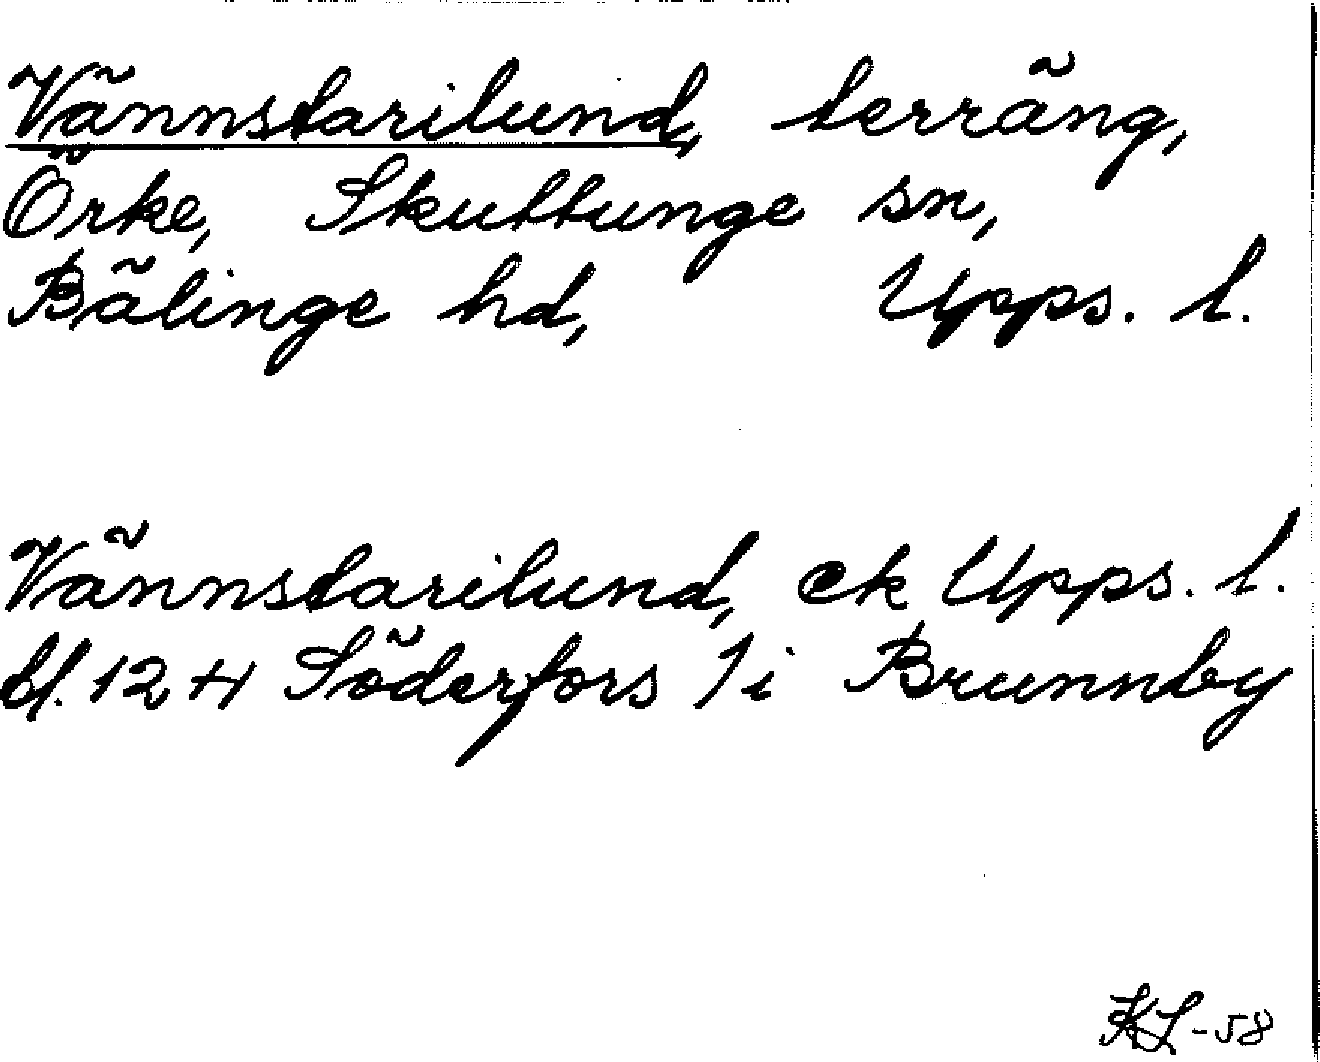 Vännstarilund, terräng,
Örke, Skuttunge sn,
Bälinge hd, Upps. l.
Vännstarilund, ek Upps. l.
bl. 12 H Söderfors 1 i Brunnby
KL-58